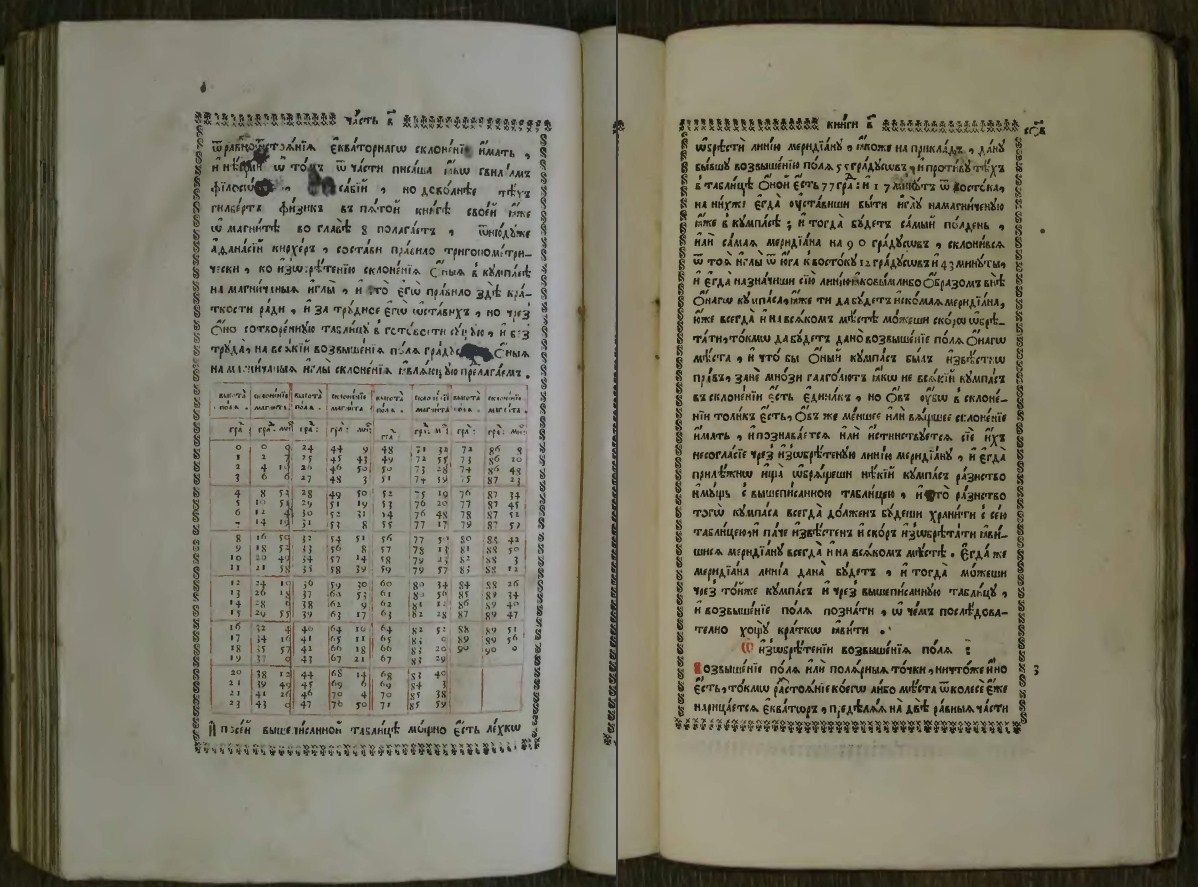 часть в҃
ѿ равноѿстоѧнїѧ екваторнагѡ склоненїе имать ,
ѡ томъ ѿ части писаша ꙗкѡ гвилїамъ
но доволнѣе тѣхъ
гилбертъ физикъ въ пѧтой книгѣ своей юже
ѡ магнитѣ во главѣ 8 полагаетъ , ѿнюдуже
аѳанасїй кирхеръ , состави правило тригонометри-
чески , ко изѡбрѣтенїю склоненїѧ ѻныѧ в кумпасѣ
на магничныѧ иглы , и то егѡ правило здѣ кра-
ткости ради , и за труднсе егѡ ѡставихъ , но чрез
ѻно сотворенную таблицу в готовости сущую , и без
труда , на всѧкїй возвышенїѧ полѧ градусъ ѻныѧ
на магничныѧ иглы склоненїѧ ꙗвлѧющую предлагаемъ .
высота полѧ . склоненїе магнита . высота полѧ . склоненїе магнита высота полѧ . склоненїе магнита высота полѧ . склоненїе магнита .
гра : гра : ми гра : гра : ми : гра гра : ми : гра : гра : ми :
0 0 0 24 44 9 48 71 32 72 86 8
1 2 7 25 45 43 49 72 55 73 86 20
2 4 26 46 50 50 73 28 74 86 48
3 6 6 27 48 3 51 74 75 87 23
4 8 52 28 49 50 52 75 19 76 87 34
5 10 29 51 19 53 76 20 77 87 45
6 12 4 30 52 31 54 76 48 78 87 52
7 14 19 31 53 8 55 77 17 79 87 59
8 16 50 32 54 51 56 77 50 80 83 42
9 18 52 33 56 8 57 78 13 81 88 50
10 20 49 34 57 14 58 79 23 82 88 3
11 21 58 35 58 39 59 79 57 83 88 12
12 24 36 59 30 60 80 34 84 88 26
13 26 18 37 60 53 61 80 56 85 89 34
14 28 6 38 62 9 62 81 12 86 89 40
15 29 55 39 63 17 63 82 28 87 89 47
16 32 4 40 64 10 64 82 52 88 89 51
17 34 16 41 65 11 65 83 0 89 89 56
18 35 57 42 66 18 66 83 20 90 90 0
19 37 0 43 67 21 67 83 29
20 38 12 44 68 14 68 83 40
21 39 49 45 69 6 69 84 3
22 41 26 46 70 4 70 85 38
23 43 0 47 70 50 71 85 59
И по сей вышеписанной таблицѣ мощно есть легкѡ
книги в҃
ѡбрѣсти линїю меридїану , ꙗкоже на прикладъ , дану
бывшу возвышенїю полѧ 55 градусѡвъ , и противу тѣхъ
в таблицѣ ѻной есть 77 гра : и 17 минутъ ѿ востока ,
на нихже егда оуставиши быти иглу намагниченую
юже в кумпасѣ ; и тогда будетъ самый полдень ,
или самаѧ меридїана на 90 градусѡвъ , склонивсѧ
ѿ тоѧ иглы ѿ юга к востоку 12 градусѡвъ и 43 минуты ,
и егда назначиши сїю линїю ꙗковымлибо ѻбразомъ внѣ
ѻнагѡ кумпаса , юже ти да будетъ искомаѧ меридїана ,
юже всегда и на всѧкомъ мѣстѣ можеши скорѡ ѡбрѣ-
тати , токмѡ да будетъ дано возвышенїе полѧ ѻнагѡ
мѣста , и что бы ѻный кумпасъ былъ извѣстнѡ
правъ , зане мнози глаголютъ ꙗкѡ не всѧкїй кумпасъ
въ склоненїи есть единакъ , но ѻвъ оубѡ в склоне-
нїи толикъ есть , ѻвъ же меншее или вѧщшее склоненїе
имать , и познаваетсѧ или истинствуетсѧ сїе ихъ
несогласїе чрез изѡбрѣтеную линїю меридїану , и егда
прилѣжнѡ ища ѡбрѧщеши нѣкїй кумпасъ разнство
имущъ с вышеписанною таблицею , и то разнство
тогѡ кумпаса всегда долженъ будеши хранити с сею
таблицею , и паче извѣстен и скорѡ изѡбрѣтати ꙗви-
шисѧ меридїану всегда и на всѧкомъ мѣстѣ . Егда же
меридїана линїа дана будетъ , и тогда можеши
чрез тойже кумпасъ и чрез вышеписанную таблицу ,
и возвышенїе полѧ познати , ѡ чемъ послѣдова-
телно хощу краткѡ ꙗвити .
Ѡ изѡбрѣтенїи возвышенїѧ полѧ :
Возвышенїе полѧ или полѧрныѧ точки , ничтоже ино 3
есть , токмѡ растоѧнїе коегѡ либо мѣста ѿ колесе еже
нарицаетсѧ екваторъ , предѣлѧѧ на двѣ равныѧ части